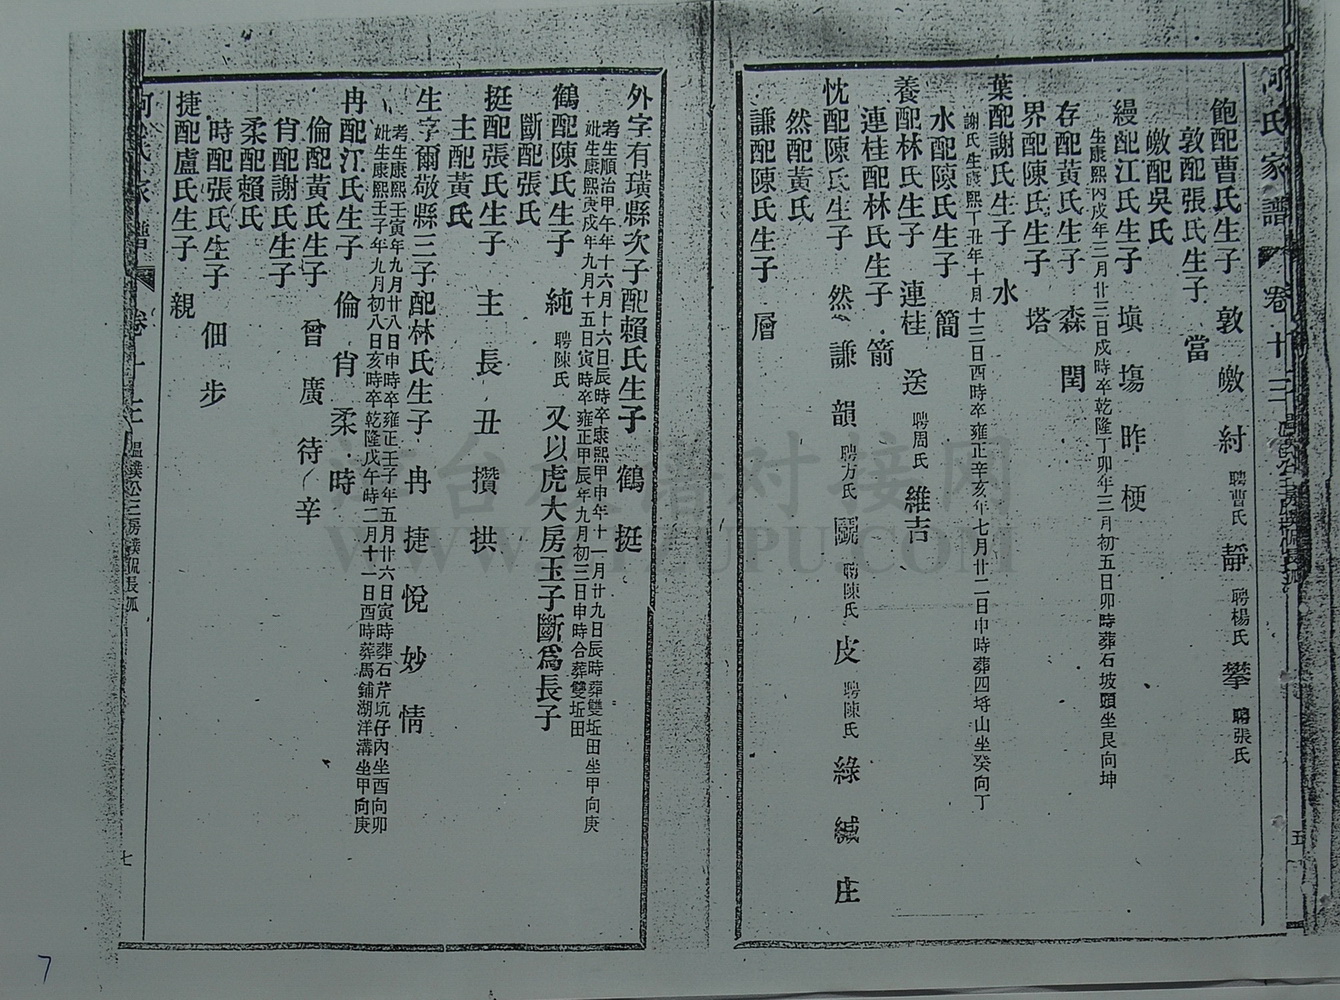 何氏家譜 卷廿三
五
飽配曹氏生子 敦 皦 紂 聘曹氏 靜 聘楊氏 攀 聘張氏
敦配張氏生子 當
皦配吳氏
縵配江氏生子 塡 塲 昨 梗
生康熙丙戍年三月廿二日戍時卒乾隆丁卯年三月初五日卯時葬石坡頭坐艮向坤
存配黃氏生子 森 閏
界配陳氏生子 塔
葉配謝氏生子 水
謝氏生康熙丁丑年十月十三日酉時卒雍正辛亥年七月廿二日中時葬四埓山坐癸向丁
水配陳氏生子 簡
養配林氏生子 連桂 送 聘周氏 維吉
連桂配林氏生子 箭
忱配陳氏生子 然 謙 韻 聘方氏 聘陳氏 皮 聘陳氏 綠 緘 庄
然配黃氏
謙配陳氏生子 層
外字有璜縣次子配賴氏生子 鶴 挺
考生順治甲午年十六月十六日辰時卒康熙甲申年十一月廿九日辰時葬雙坵田坐甲向庚
妣生康熙庚戍年九月十五日寅時卒雍正甲辰年九月初三日申時合葬雙坵田
鶴配陳氏生子 純 聘陳氏 又以虎大房玉子斷爲長子
斷配張氏
挺配張氏生子 主 長 丑 攢 拱
主配黃氏
生字爾敬縣三子配林氏生子 冉 捷 悅 妙 情
考生康熙壬寅年九月廿八日申時卒雍正壬子年五月廿六日寅時葬石芹坑仔內坐酉向卯
妣生康熙壬子年九月初八日亥時卒乾隆戊午時二月十一日酉時葬馬鋪湖洋溝坐甲向庚
冉配江氏生子 倫 肖 柔 時
倫配黃氏生子 曾 廣 待 辛
肖配謝氏生子
柔配賴氏
時配張氏生子 佃 步
捷配盧氏生子 親
何氏家譜 卷
七
7
台 对接网
WWW. PU.COM